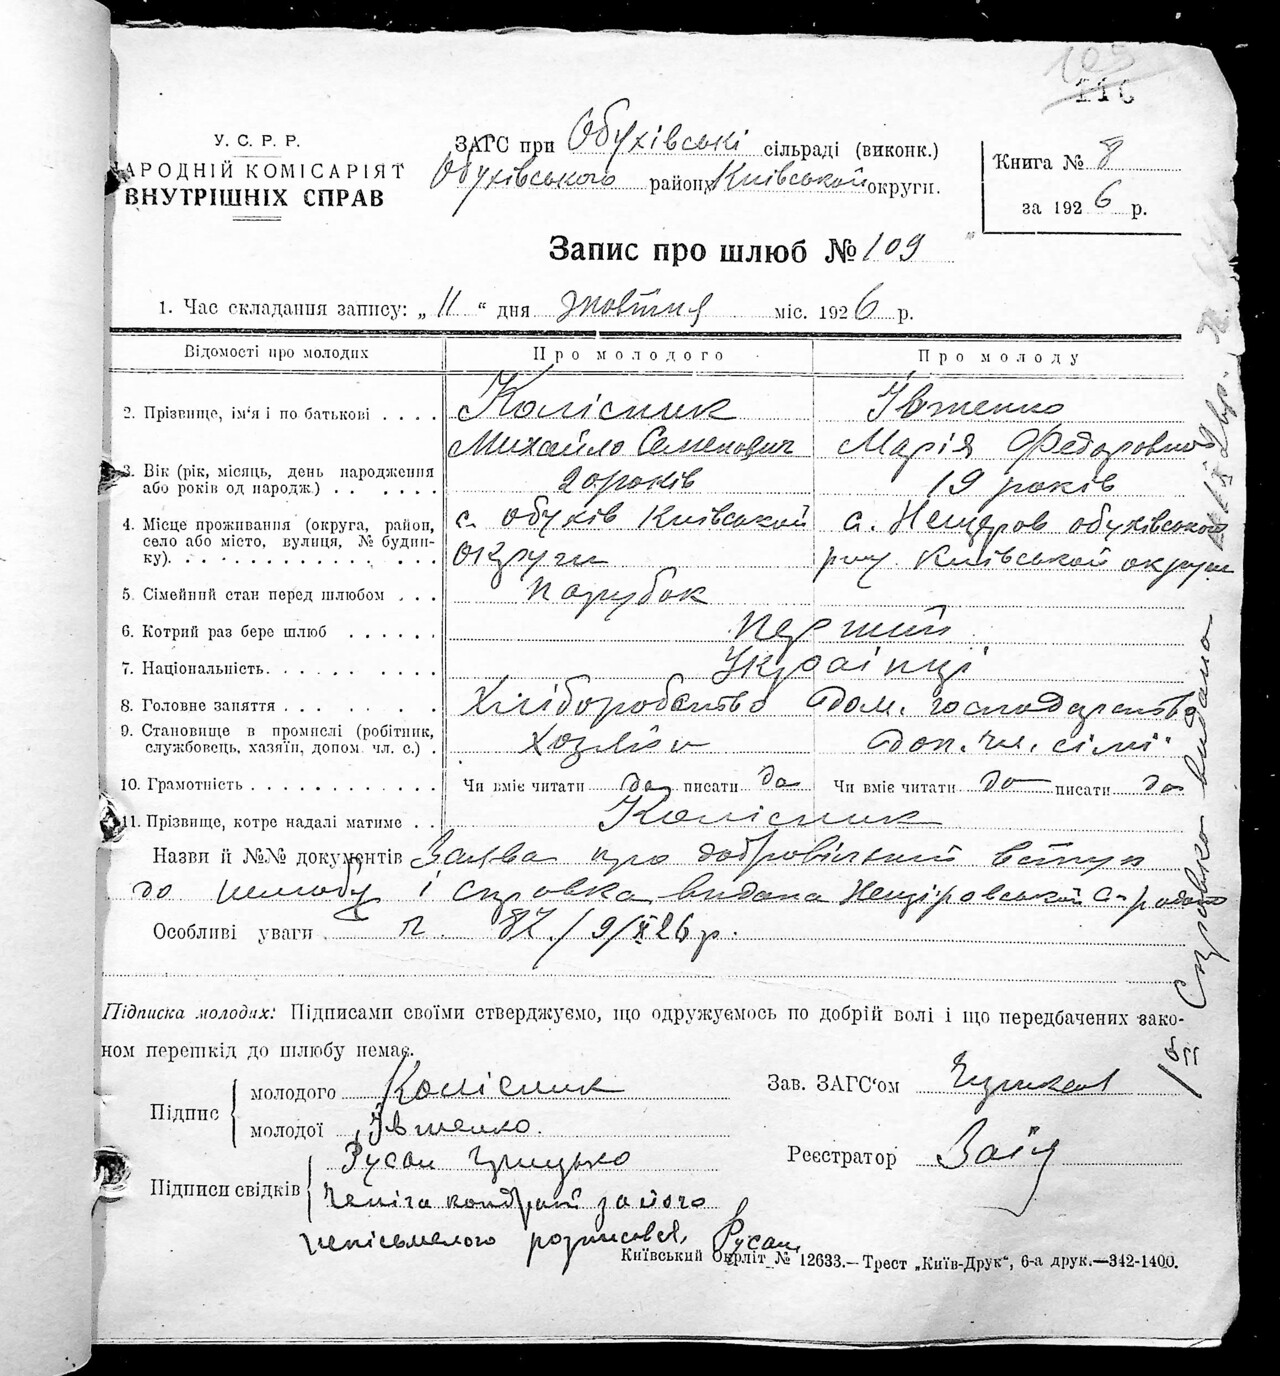 109
116
У. С. Р. Р.
НАРОДНІЙ КОМІСАРІЯТ
ВНУТРІШНІХ СПРАВ
ЗАГС при Обухівські сільраді (виконк.)
Обухівського району Київської округи.
Книга № 8
за 1926 р.
Запис про шлюб № 109
1. Час складання запису: „ 11 “ дня жовтня міс. 1926 р.
Відомості про молодих Про молодого Про молоду
2. Прізвище, ім'я і по батькові . . . . Колісник Івженко
Михайло Семенович Марія Федоровна
3. Вік (рік, місяць, день народження
або років од народж.) . . . . . . 20 років 19 років
4. Місце проживання (округа, район, с. Обухів Київської с. Нещеров Обухівського
село або місто, вулиця, № будин-
ку). . . округи р-ну Київської округи
5. Сімейний стан перед шлюбом . . . парубок
6. Котрий раз бере шлюб . . . . . . перший
7. Національність. . . . . . . . . українці
8. Головне заняття . . . . . . . . Хліборобство дом. господарство
9. Становище в промислі (робітник,
службовець, хазяїн, допом. чл. с.) . хозяїн доп. чл. сімї
10. Грамотність . . . . . . . . . . Чи вміє читати да писати да Чи вміє читати да писати да
11. Прізвище, котре надалі матиме . . Колісник
Назви й №№ документів Заява про добровільний вступ
до шлюбу і справка видана Нещірівської с-радою
Особливі уваги 87/9/X 26 р.
Підписка молодих: Підписами своїми стверджуємо, що одружуємось по добрій волі і що передбачених зако-
ном перешкід до шлюбу немає.
Підпис
молодого Колісник
молодої Івженко.
Зав. ЗАГС'ом
Реєстратор Заїц
Підписи свідків
Русан Грицько
Кондрат за його
неписьменого розписався Русан
Київський Окрліт № 12633.—Трест „Київ-Друк“, 6-а друк.—342-1400.
Справка видана